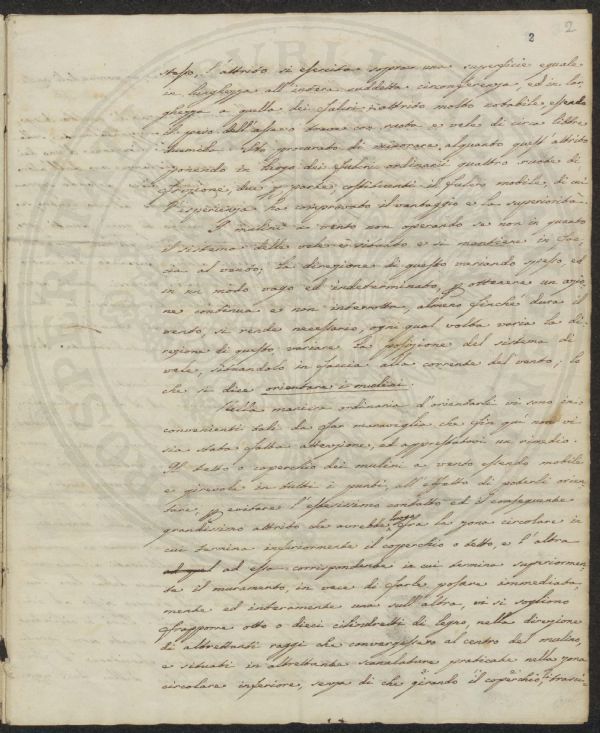 2
2
stesso, l'attrito si esercita sopra una superficie eguale
in larghezza all'intera suddetta circonferenza, ed in lar
ghezza a quella dei fulcri: attrito molto notabile, essendo
il peso dell'asse o trave con ruota e vele di circa libbre
Ho procurato di minorare alquanto quest'attrito
ponendo in luogo dei fulcri ordinarii quattro ruote di
frizione, due p parte costituenti il fulcro mobile, di cui
l'esperienza ha comprovato il vantaggio e la superiorità.
I mulini a vento non operando se non in quanto
il sistema delle vele è situato e si mantiene in fac
cia al vento; la direzione di questo variando spesso ed
in un modo vago ed indeterminato, p ottenere un azio
ne continua e non interrotta, almeno finchè dura il
vento, si rende necessario, ogni qual volta varia la di
rezione di questo variare la posizione del sistema di
vele, situandolo in faccia alla corrente del vento; lo
che si dice orientare i mulini.
Nella maniera ordinaria d'orientarli vi sono in
convenienti tali da far maraviglia che fin quì non vi
sia stata fatta attenzione, ed apprestatovi un rimedio.
Il tetto o coperchio dei mulini a vento essendo mobile
e girevole in tutti i punti, all'effetto di poterli orien
tare, p evitare l'estesissimo contatto ed il conseguente
grandissimo attrito che avrebbe luogo fra la zona circolare in
cui termina inferiormente il coperchio o tetto, e l'altra
ed qual ad essa corrispondente in cui termina superiormen
te il muramento, in vece di farle posare immediata
mente ed interamente una sull'altra, vi si sogliono
frapporre otto o dieci cilindretti di legno, nella direzione
di altrettanti raggi che convergessero al centro del mulino,
e situati in altrettante scanalature praticate nella zona
circolare inferiore, senza di che girando il coperchio, strasci